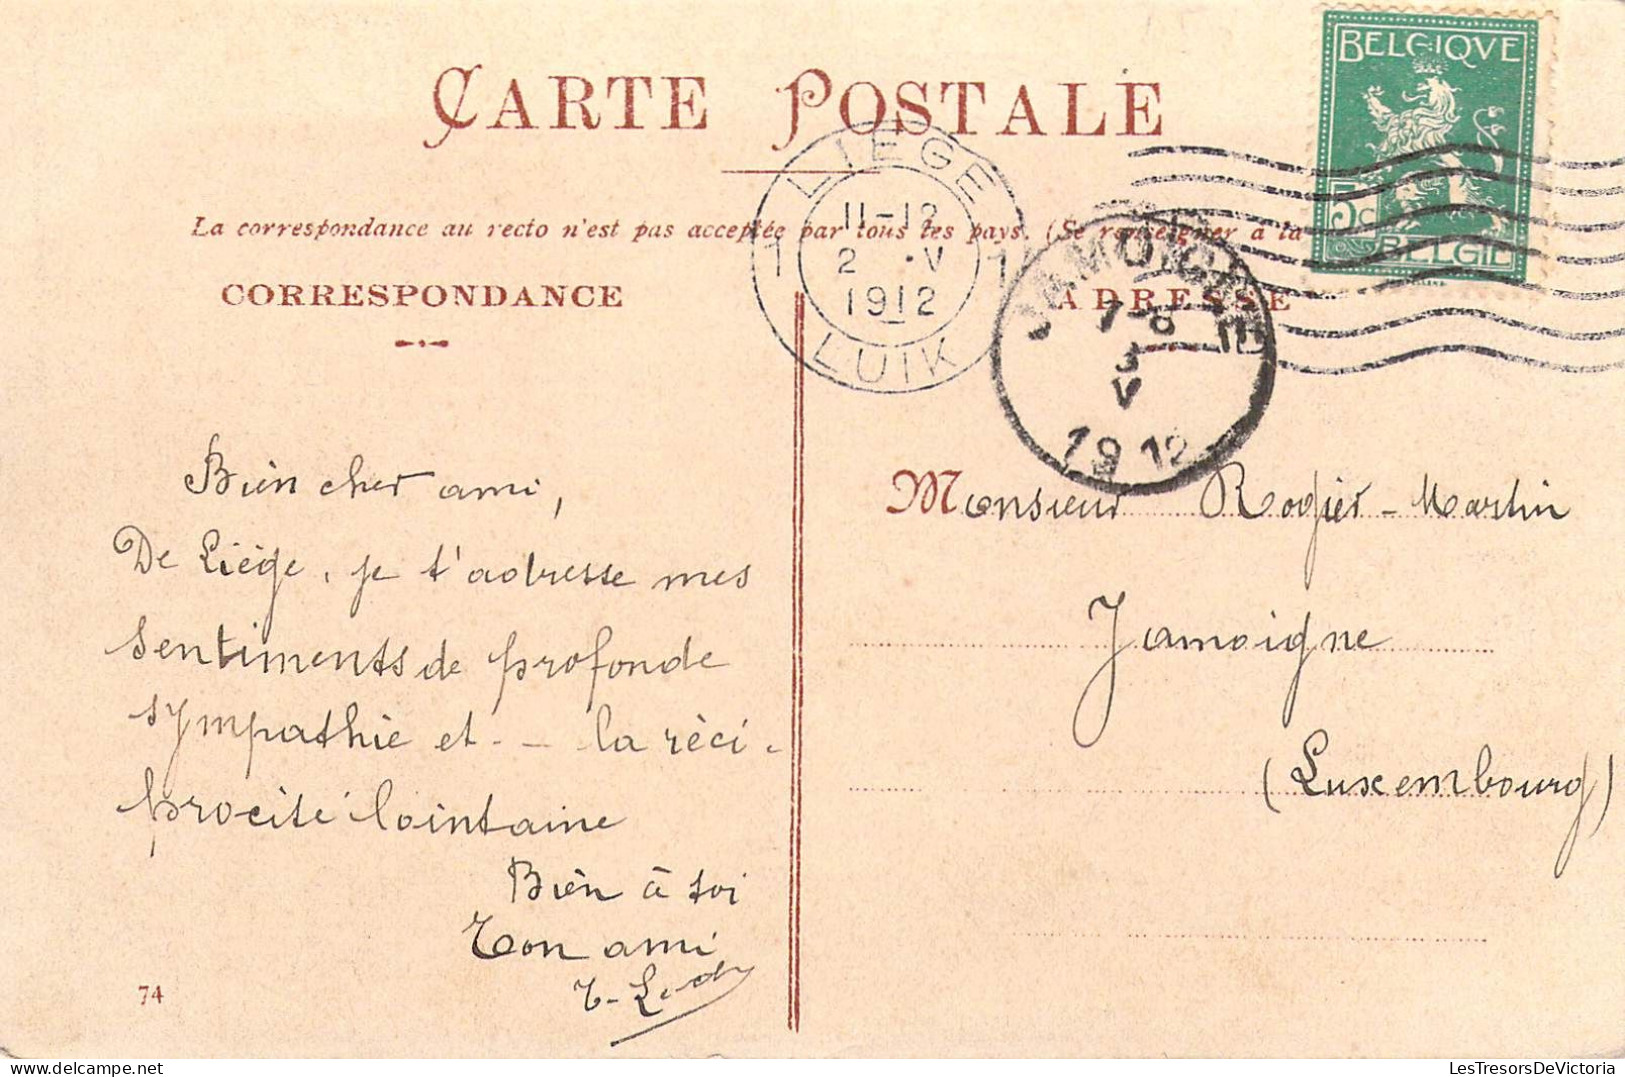 CARTE POSTALE
BELGIQVE
5c
BELGIE
LIEGE
11-12
2 .V
1912
LUIK
1 1
La correspondance au recto n'est pas acceptée par tous les pays. (Se renseigner à la
CORRESPONDANCE
ADRESSE
JAMOIGNE
7-8
3
V
1912
Bien cher ami,
De Liège, je t'adresse mes
sentiments de profonde
sympathie et - - la réci-
procité lointaine
Bien à toi
Ton ami
Monsieur Rogier-Martin
Jamoigne
(Luxembourg)
74
LesTresorsDeVictoria